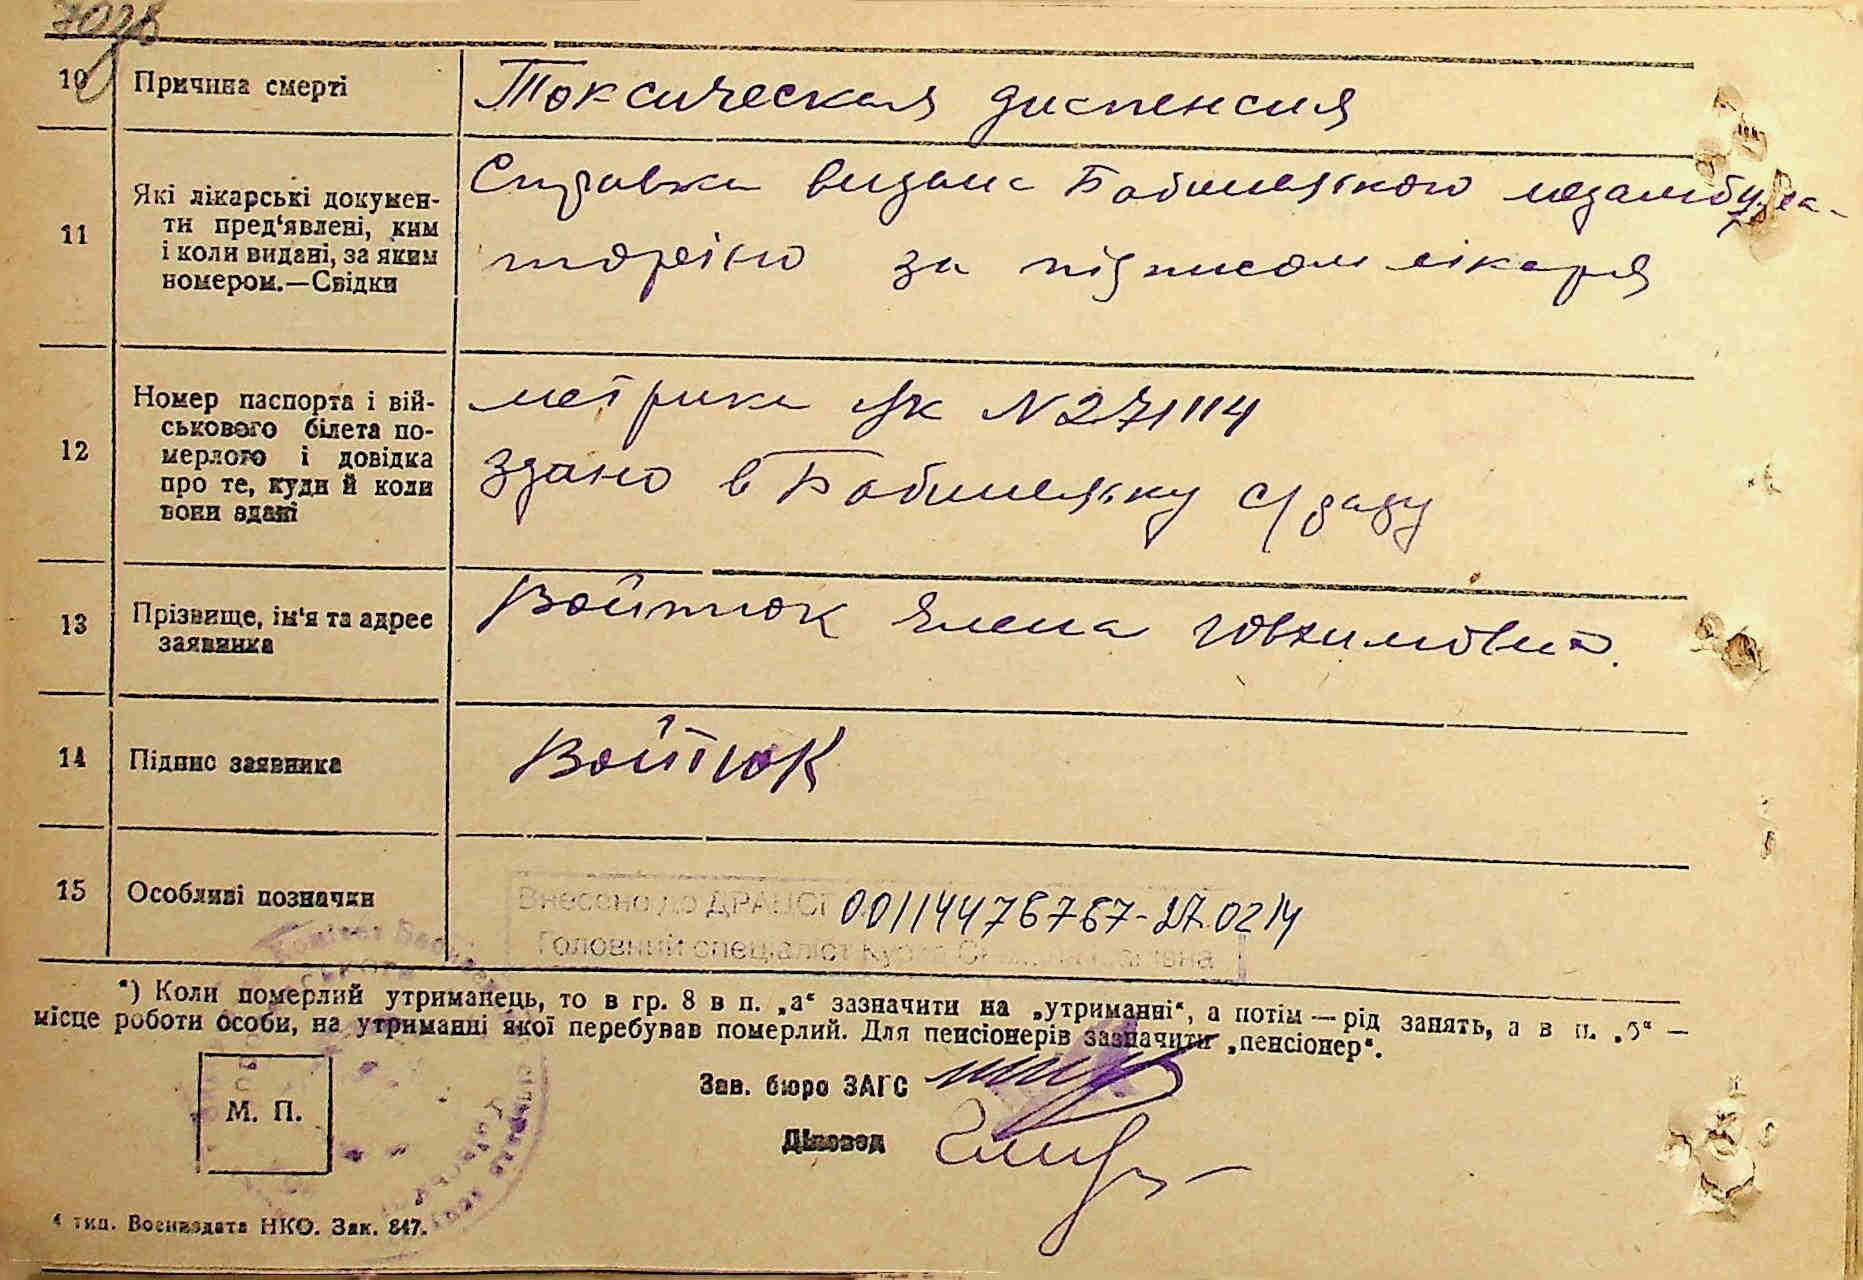 7028
10 Причина смерті
Токсическая диспенсия
11 Які лікарські докумен-
ти пред'явлені, ким
і коли видані, за яким
номером.—Свідки
Справка видана медамбула-
торією за підписом лікаря
12 Номер паспорта і вій-
ськового білета по-
мерлого і довідка
про те, куди й коли
вони здані
метрика № 271114
здано в с/раду
13 Прізвище, ім'я та адрес
заявника
Войтюк Елена
14 Підпис заявника
Войтюк
15 Особливі позначки
Внесено до ДРАЦСГ 00114476767-27.0214
Головний спеціаліст
*) Коли померлий утриманець, то в гр. 8 в п. „а“ зазначити на „утриманні“, а потім — рід занять, а в п. „б“ —
місце роботи особи, на утриманні якої перебував померлий. Для пенсіонерів зазначити „пенсіонер“.
Зав. бюро ЗАГС
М. П.
Діловод
4 тип. Воениздата НКО. Зак. 847.